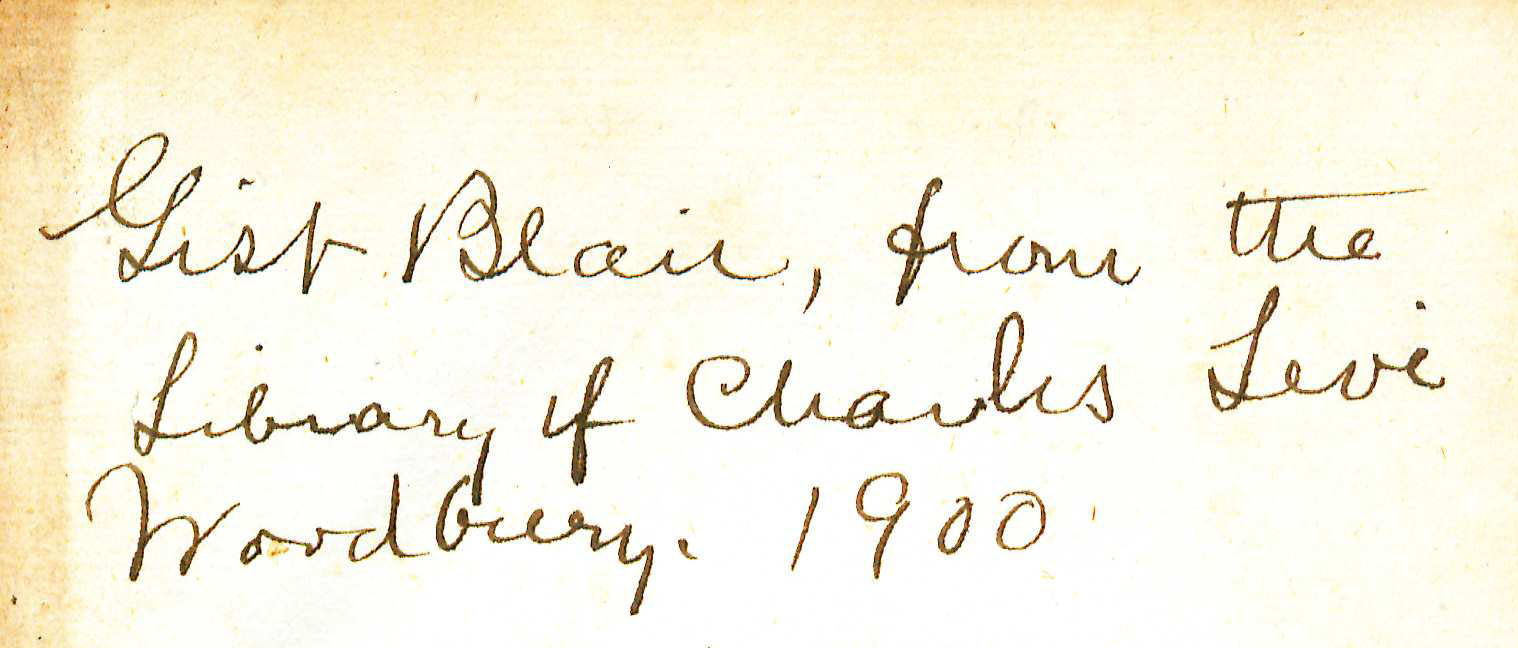 Gist Blair, from the
Library of Charles Levi
Woodbury. 1900